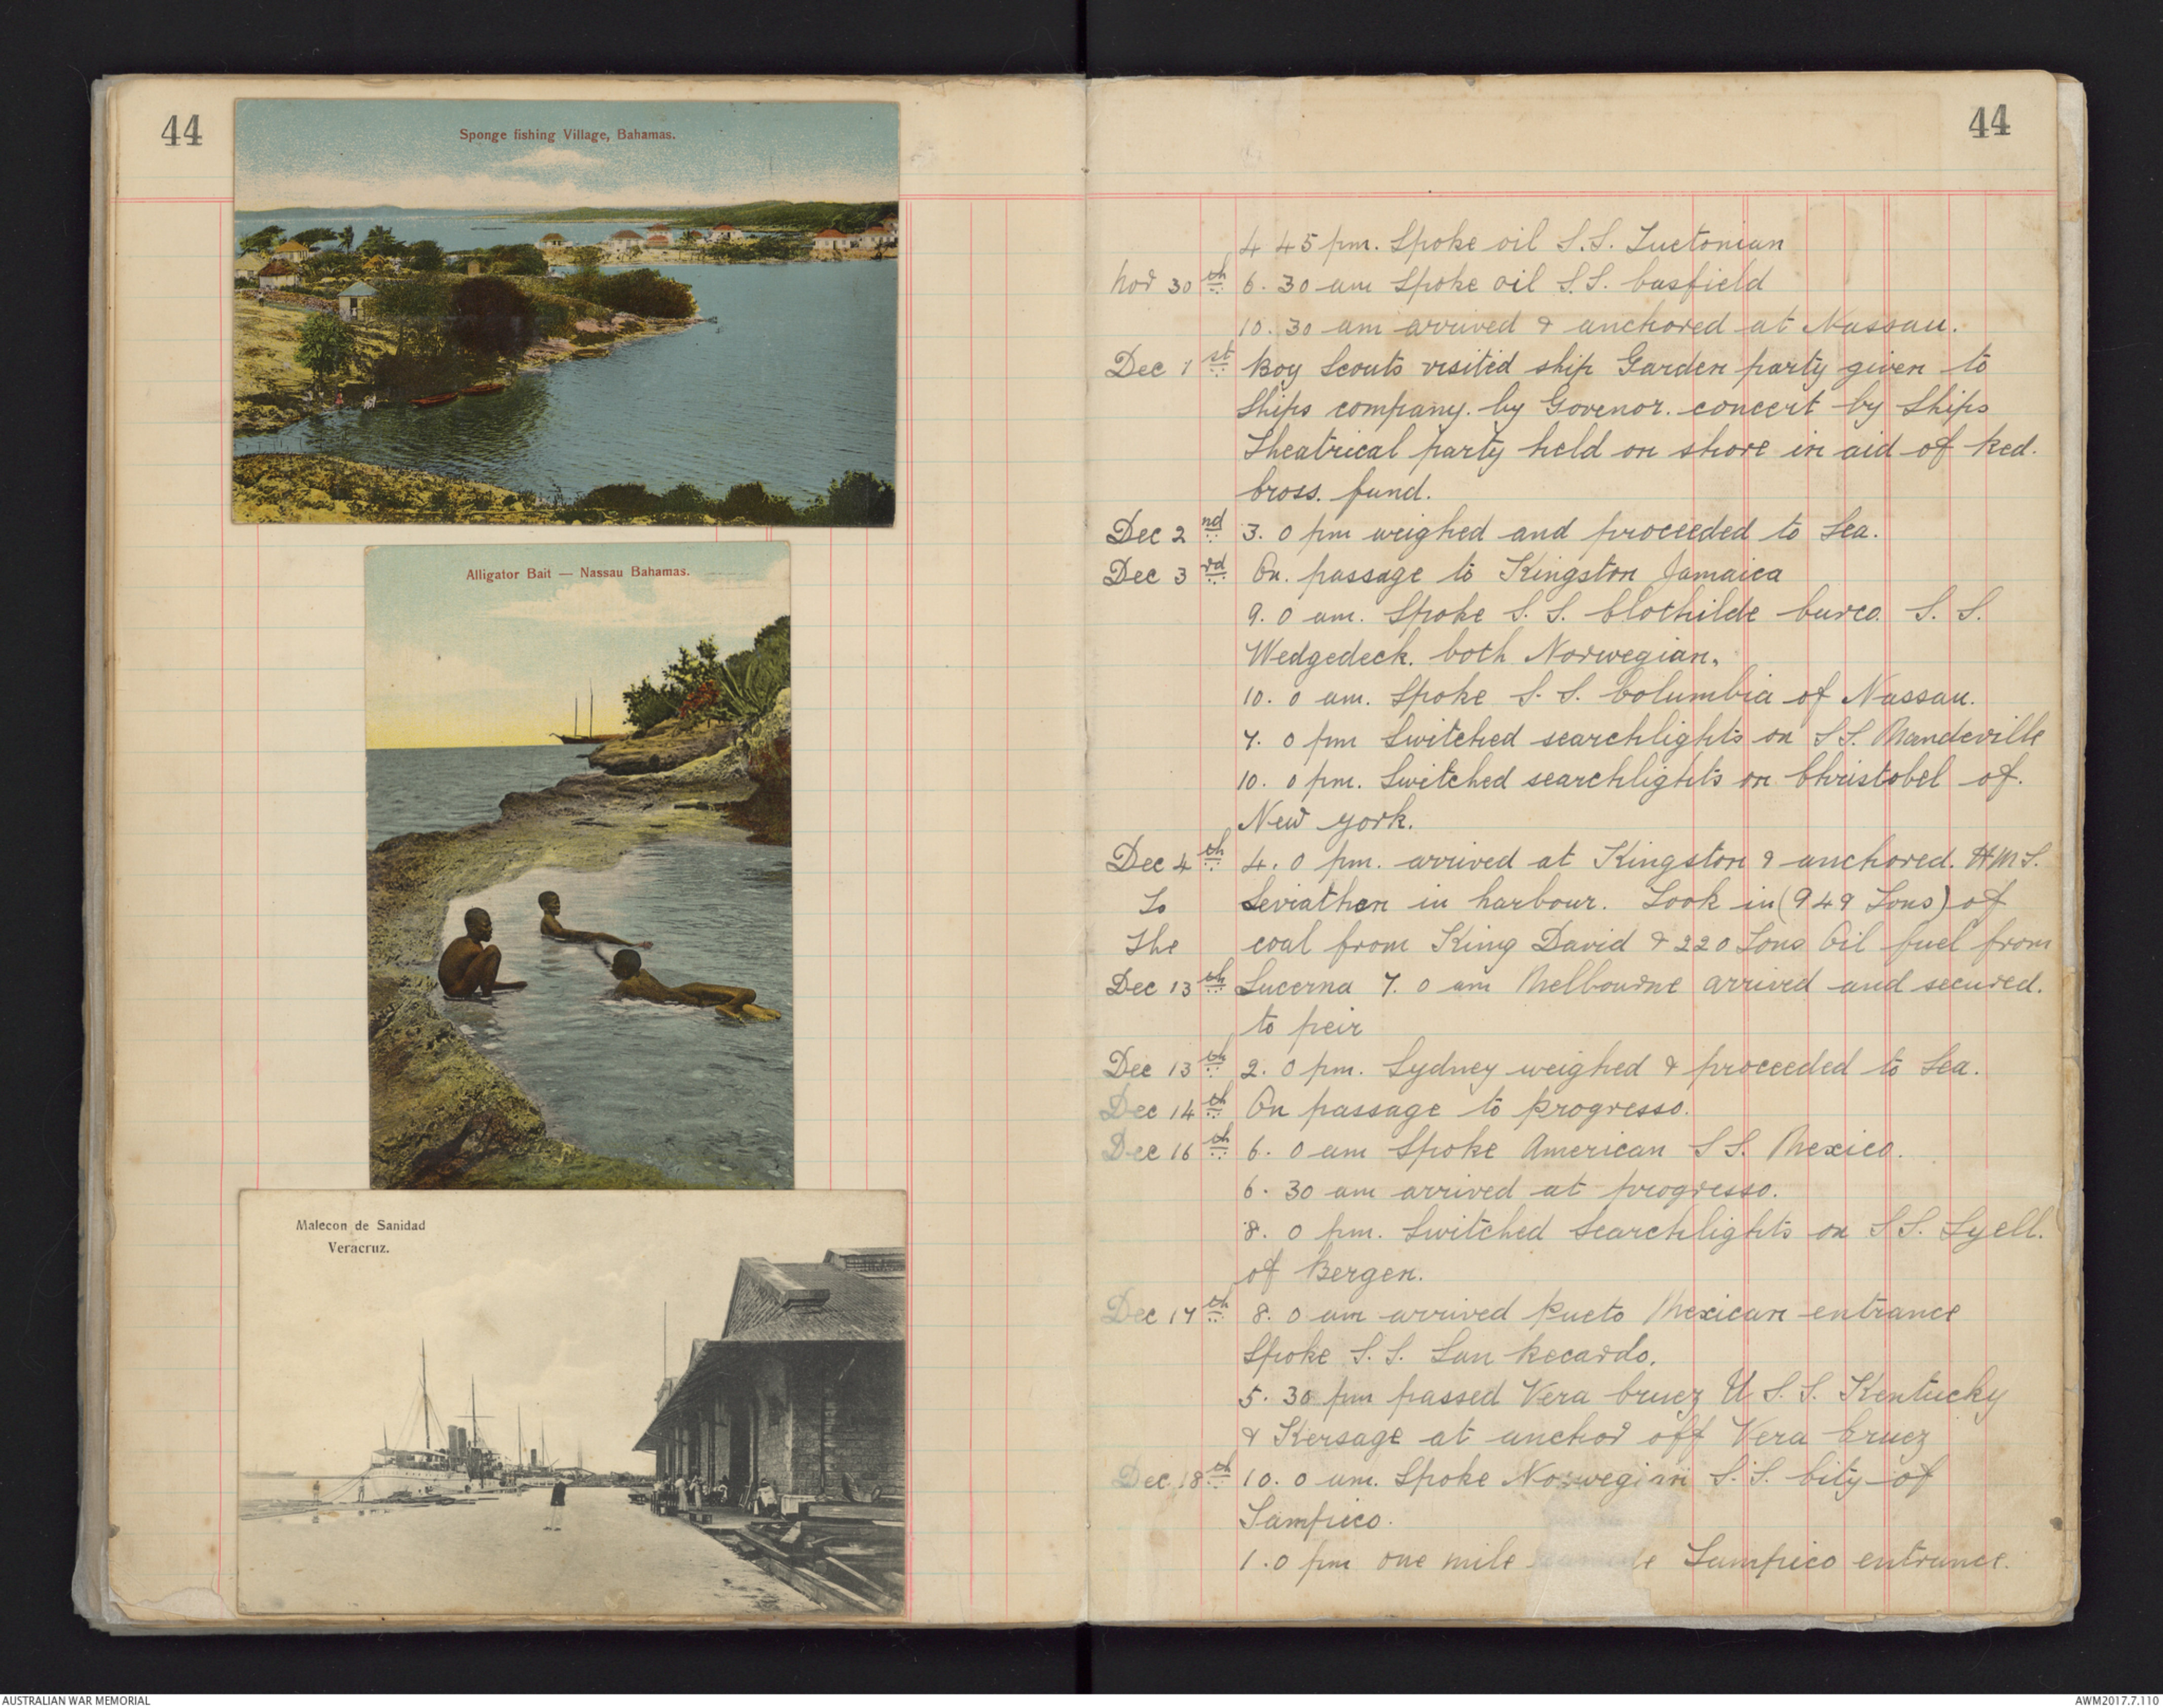 44
Sponge fishing Village, Bahamas.
Alligator Bait — Nassau Bahamas.
Malecon de Sanidad
Veracruz.
44
4 45 pm. Spoke oil S.S. Tuetonian
Nov 30th 6. 30 am Spoke oil S.S. Casfield
10. 30 am arrived & anchored at Nassau.
Dec 1st Boy Scouts visited ship Garden party given to
Ships company. by Govenor. concert by Ships
Theatrical party held on shore in aid of Red.
Cross. fund.
Dec 2nd 3. 0 pm weighed and proceeded to Sea.
Dec 3rd On. passage to Kingston Jamaica
9. 0 am. Spoke S. S. Clothilde Curco. S. S.
Wedgedeck. both Norwegian.
10. 0 am. Spoke S. S. Columbia of Nassau.
7. 0 pm Switched searchlights on S S. Mandeville
10. 0 pm. Switched searchlights on Christobel of.
New York.
Dec 4th 4. 0 pm. arrived at Kingston & anchored. HMS.
To Leviathan in harbour. Took in (949 Tons) of
The coal from King David & 220 Tons Oil fuel from
Dec 13th Lucerna 7. 0 am Melbourne arrived and secured.
to peir
Dec 13th 2. 0 pm. Sydney weighed & proceeded to Sea.
Dec 14th On passage to Progresso.
Dec 16th 6. 0 am Spoke American S S. Mexico.
6. 30 am arrived at progresso.
8. 0 pm. Switched Searchlights on S S. Lyell.
of Bergen.
Dec 17th 8. 0 am arrived Pueto Mexican entrance
Spoke S. S. San Recardo.
5. 30 pm passed Vera Cruez U S. S. Kentucky
& Kersage at anchor off Vera Cruez
Dec. 18th 10. 0 am. Spoke Norwegian S. S. City of
Tampico.
1. 0 pm one mile Tampico entrance.
AUSTRALIAN WAR MEMORIAL
AWM2017.7.110